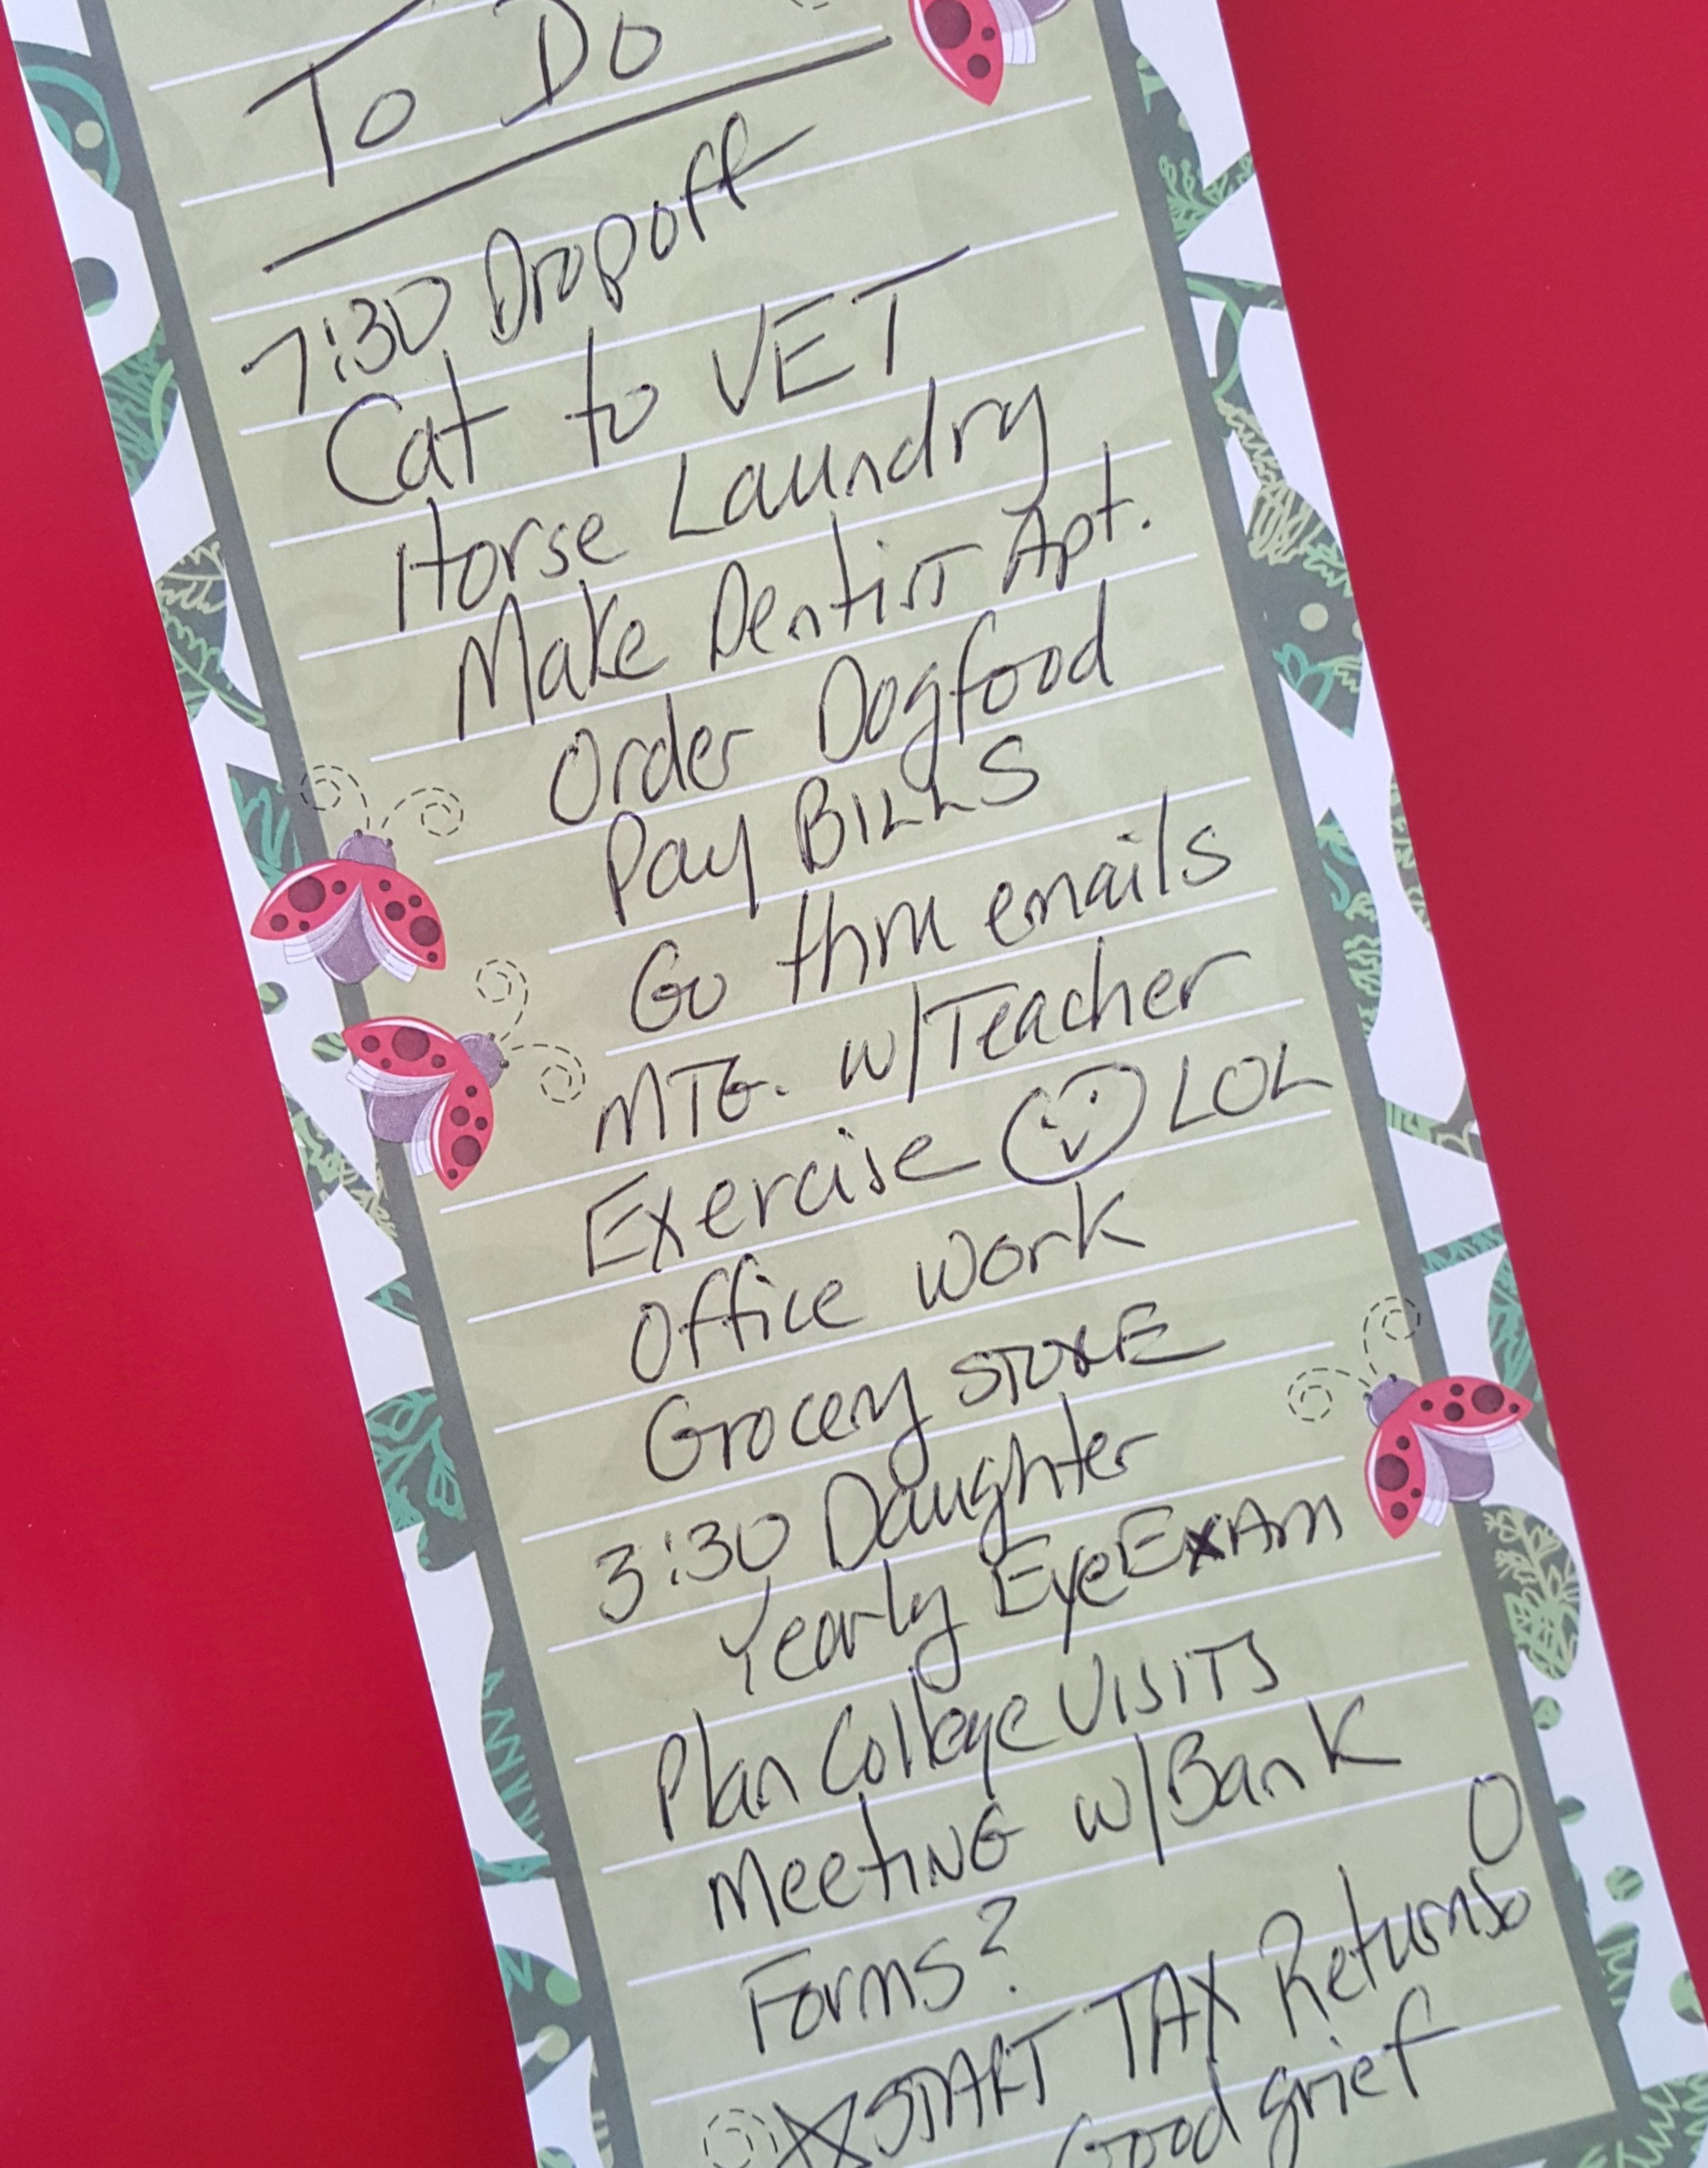 To Do
7:30 Dropoff
Cat to VET
Horse Laundry
Make Dentist Apt.
Order Dogfood
Pay BILLS
Go thru emails
MTG. w/Teacher
Exercise LOL
Office work
Grocery STORE
3:30 Daughter
Yearly Eye EXAM
Plan College VISITS
MeetiNG w/Bank
Forms?
START TAX Returns!
Good grief